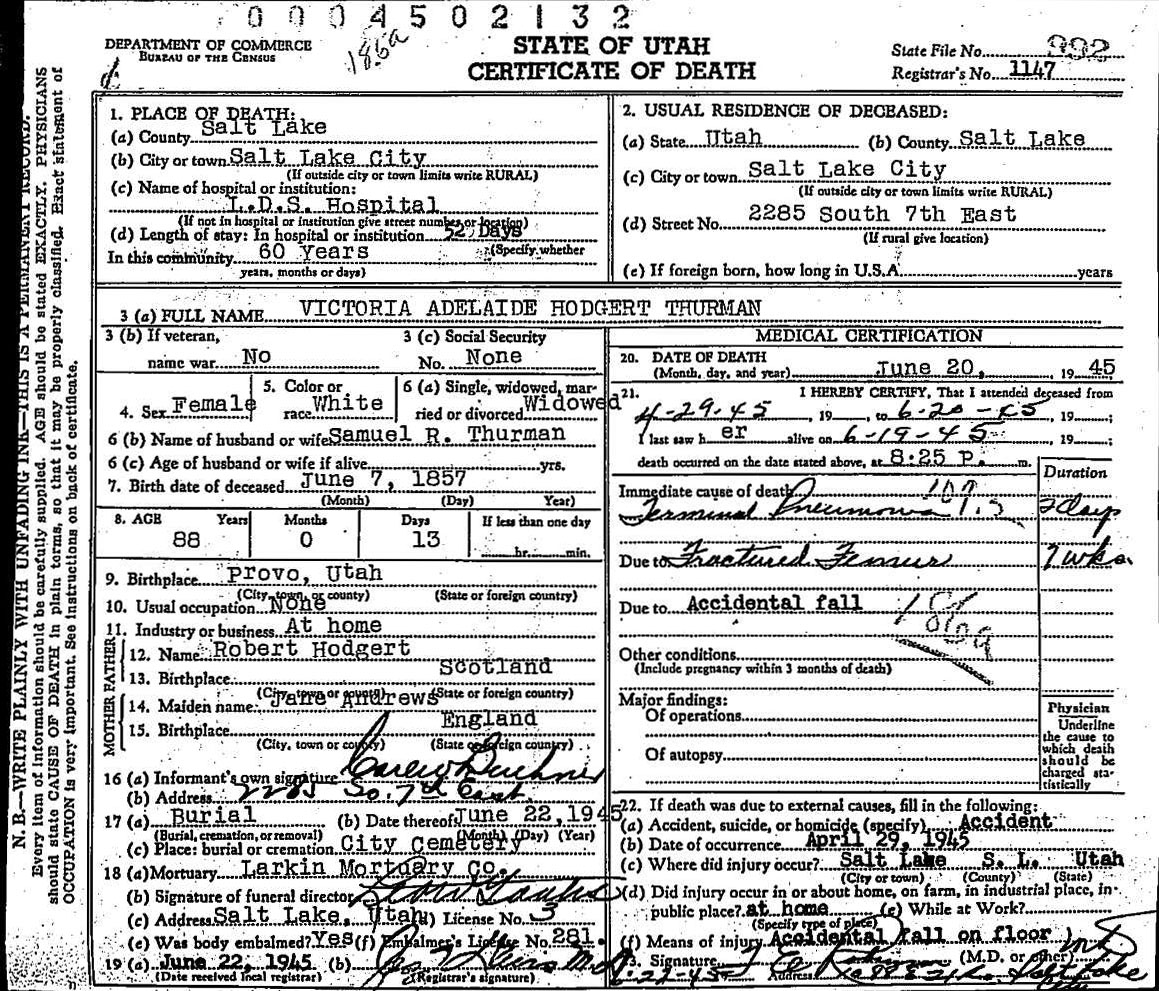 0004502132
DEPARTMENT OF COMMERCE
BUREAU OF THE CENSUS
186a
STATE OF UTAH
CERTIFICATE OF DEATH
State File No. 992
Registrar's No. 1147
N. B.—WRITE PLAINLY WITH UNFADING INK—THIS IS A PERMANENT RECORD.
Every item of information should be carefully supplied. AGE should be stated EXACTLY. PHYSICIANS
should state CAUSE OF DEATH in plain terms, so that it may be properly classified. Exact statement of
OCCUPATION is very important. See instructions on back of certificate.
1. PLACE OF DEATH:
(a) County Salt Lake
(b) City or town Salt Lake City
(If outside city or town limits write RURAL)
(c) Name of hospital or institution:
L.D.S. Hospital
(If not in hospital or institution give street number or location)
(d) Length of stay: In hospital or institution 52 Days
In this community 60 Years (Specify whether
years, months or days)
2. USUAL RESIDENCE OF DECEASED:
(a) State Utah (b) County Salt Lake
(c) City or town Salt Lake City
(If outside city or town limits write RURAL)
(d) Street No. 2285 South 7th East
(If rural give location)
(e) If foreign born, how long in U.S.A. years
3 (a) FULL NAME VICTORIA ADELAIDE HODGERT THURMAN
3 (b) If veteran, 3 (c) Social Security
name war No No. None
4. Sex Female 5. Color or race White 6 (a) Single, widowed, married or divorced Widowed
6 (b) Name of husband or wife Samuel R. Thurman
6 (c) Age of husband or wife if alive yrs.
7. Birth date of deceased June 7, 1857
(Month) (Day) Year)
8. AGE Years Months Days If less than one day
88 0 13 hr. min.
9. Birthplace Provo, Utah
(City, town, or county) (State or foreign country)
10. Usual occupation None
11. Industry or business At home
FATHER
12. Name Robert Hodgert
13. Birthplace Scotland
(City, town or county) (State or foreign country)
MOTHER
14. Maiden name Jane Andrews
15. Birthplace England
(City, town or county) (State or foreign country)
16 (a) Informant's own signature
(b) Address 2285 So. 7th East
17 (a) Burial (b) Date thereof June 22, 1945
(Burial, cremation, or removal) (Month) (Day) (Year)
(c) Place: burial or cremation City Cemetery
18 (a) Mortuary Larkin Mortuary Co.
(b) Signature of funeral director
(c) Address Salt Lake, Utah (d) License No. 5
(e) Was body embalmed? Yes (f) Embalmer's License No. 281.
19 (a) June 22, 1945 (b)
(Date received local registrar) (Registrar's signature)
MEDICAL CERTIFICATION
20. DATE OF DEATH
(Month, day, and year) June 20, 19 45
21. I HEREBY CERTIFY, That I attended deceased from
4-29-45, 19, to 6-20-45, 19;
I last saw h er alive on 6-19-45, 19;
death occurred on the date stated above, at 8:25 P. m.
Duration
Immediate cause of death 107.3
Terminal Pneumonia 2 days
Due to Fractured Femur 7 wks.
Due to Accidental fall
186a
Other conditions
(Include pregnancy within 3 months of death)
Major findings:
Of operations
Of autopsy
Physician
Underline
the cause to
which death
should be
charged sta-
tistically
22. If death was due to external causes, fill in the following:
(a) Accident, suicide, or homicide (specify) Accident
(b) Date of occurrence April 29, 1945
(c) Where did injury occur? Salt Lake S. L. Utah
(City or town) (County) (State)
(d) Did injury occur in or about home, on farm, in industrial place, in
public place? at home (e) While at Work?
(Specify type of place)
(f) Means of injury Accidental fall on floor
23. Signature (M.D. or other)
6-22-45 Address Salt Lake
City